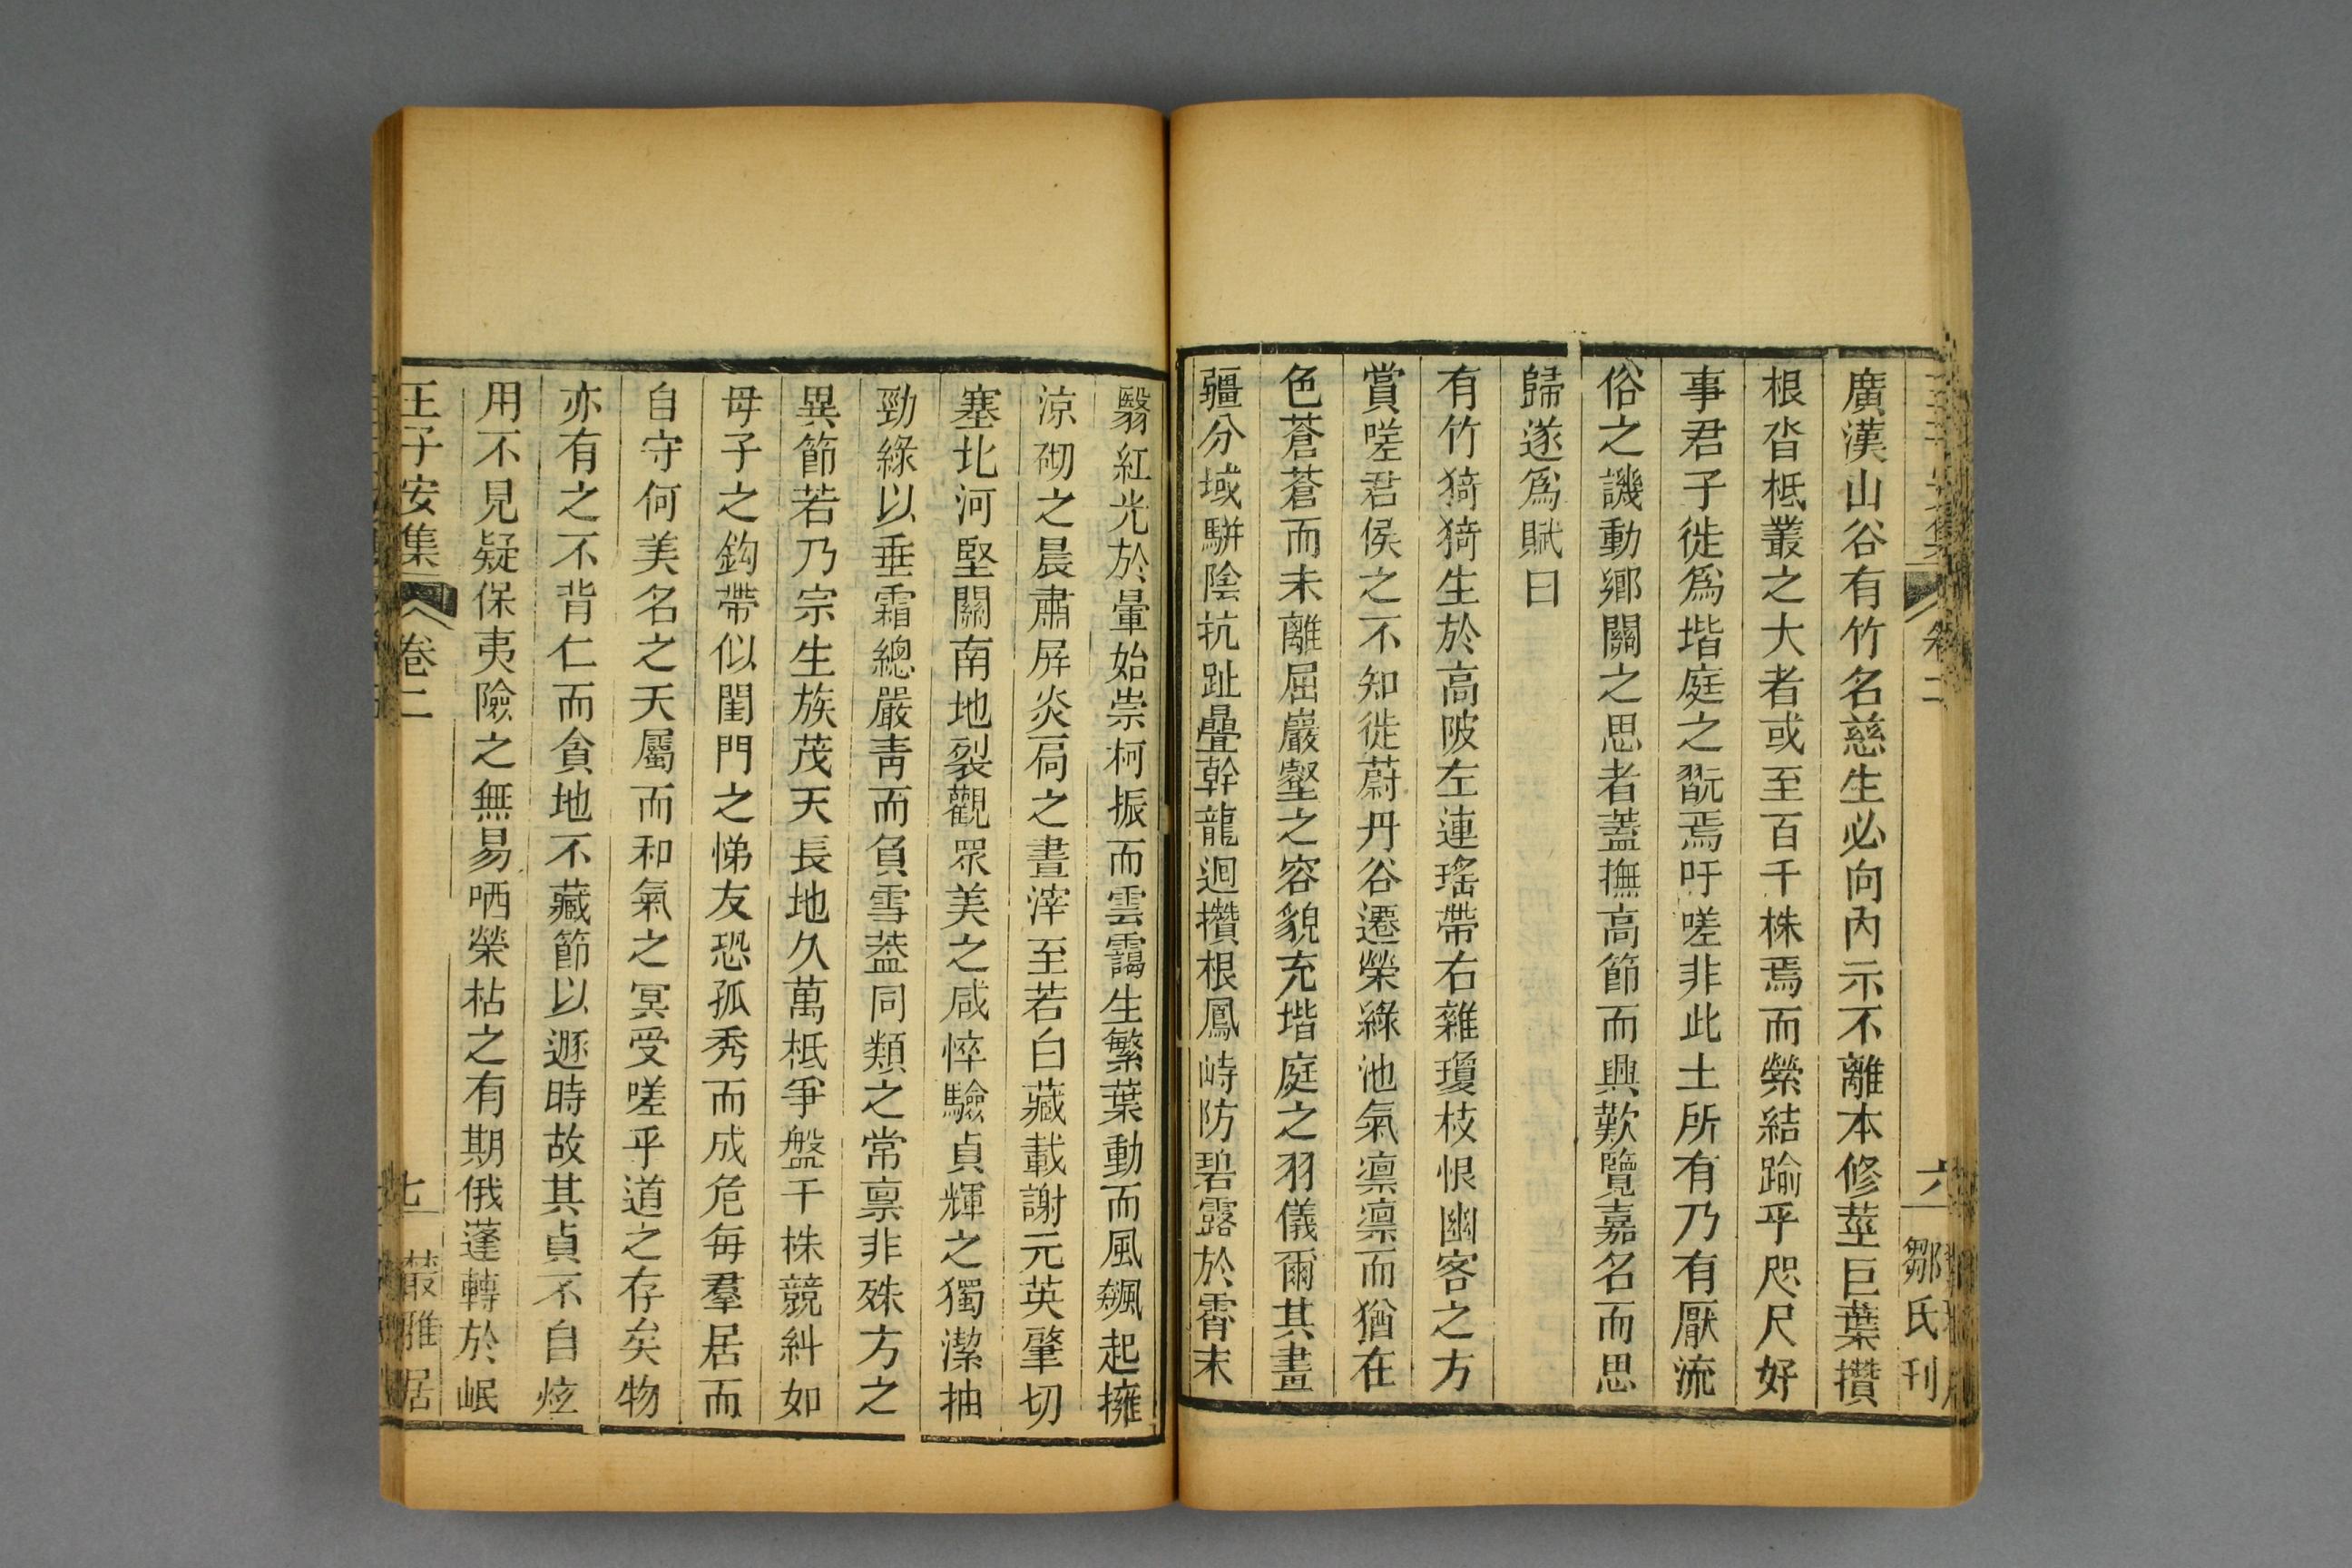 王子安集 卷二 六 鄒氏刊
廣漢山谷有竹名慈生必向內示不離本修莖巨葉攢
根沓柢叢之大者或至百千株焉而縈結踰乎咫尺好
事君子徙爲堦庭之翫焉吁嗟非此土所有乃有厭流
俗之譏動鄉關之思者蓋撫高節而興歎覽嘉名而思
歸遂爲賦曰
有竹猗猗生於高陂左連瑤帶右雜瓊枝恨幽客之方
賞嗟君侯之不知徙蔚丹谷遷榮綠池氣凛凛而猶在
色蒼蒼而未離屈巖壑之容貌充堦庭之羽儀爾其畫
疆分域駢陰抗趾疊幹龍迴攢根鳳峙防碧露於霄末
翳紅光於暈始崇柯振而雲靄生繁葉動而風飊起擁
涼砌之晨肅屏炎扃之晝滓至若白藏載謝元英肇切
塞北河堅關南地裂觀眾美之咸悴驗貞輝之獨潔抽
勁綠以垂霜總嚴靑而負雪葢同類之常禀非殊方之
異節若乃宗生族茂天長地久萬柢爭盤千株競糾如
母子之鈎帶似閨門之悌友恐孤秀而成危每羣居而
自守何美名之天屬而和氣之冥受嗟乎道之存矣物
亦有之不背仁而貪地不藏節以遯時故其貞不自炫
用不見疑保夷險之無易哂榮枯之有期俄蓬轉於岷
王子安集 卷二 七 叢雅居